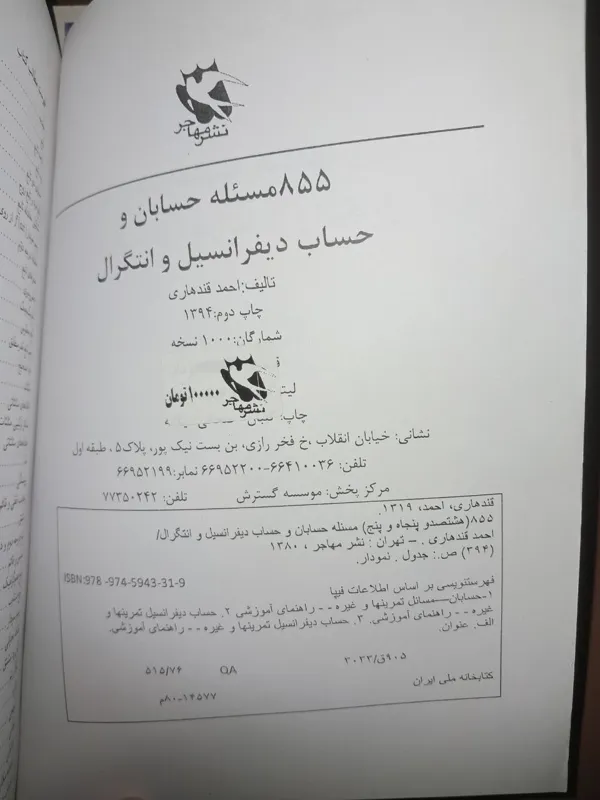 نشر مهاجر
۸۵۵ مسئله حسابان و
حساب دیفرانسیل و انتگرال
تالیف: احمد قندهاری
چاپ دوم: ۱۳۹۴
شمارگان: ۱۰۰۰ نسخه
لیت
۱۰۰۰۰۰ تومان
نشر مهاجر
چاپ:
نشانی: خیابان انقلاب ،خ فخر رازی، بن بست نیک پور، پلاک۵ ، طبقه اول
تلفن: ۶۶۴۱۰۰۳۶-۶۶۹۵۲۲۰۰ نمابر: ۶۶۹۵۲۱۹۹
مرکز پخش: موسسه گسترش تلفن: ۷۷۳۵۰۲۴۲
قندهاری، احمد، ۱۳۱۹.
۸۵۵(هشتصدو پنجاه و پنج) مسئله حسابان و حساب دیفرانسیل و انتگرال/
احمد قندهاری . – تهران : نشر مهاجر ، ۱۳۸۰
(۳۹۴) ص.: جدول . نمودار.
ISBN:978 -974-5943-31-9
فهرستنویسی بر اساس اطلاعات فیپا
۱-حسابان--مسائل تمرینها و غیره- - راهنمای آموزشی ۲. حساب دیفرانسیل تمرینها و
غیره- - راهنمای آموزشی. ۳. حساب دیفرانسیل تمرینها و غیره- - راهنمای آموزشی.
الف. عنوان.
۹۰۵ق/۳۰۳۳ QA ۵۱۵/۷۶
کتابخانه ملی ایران
۸۰-۱۴۵۷۷م